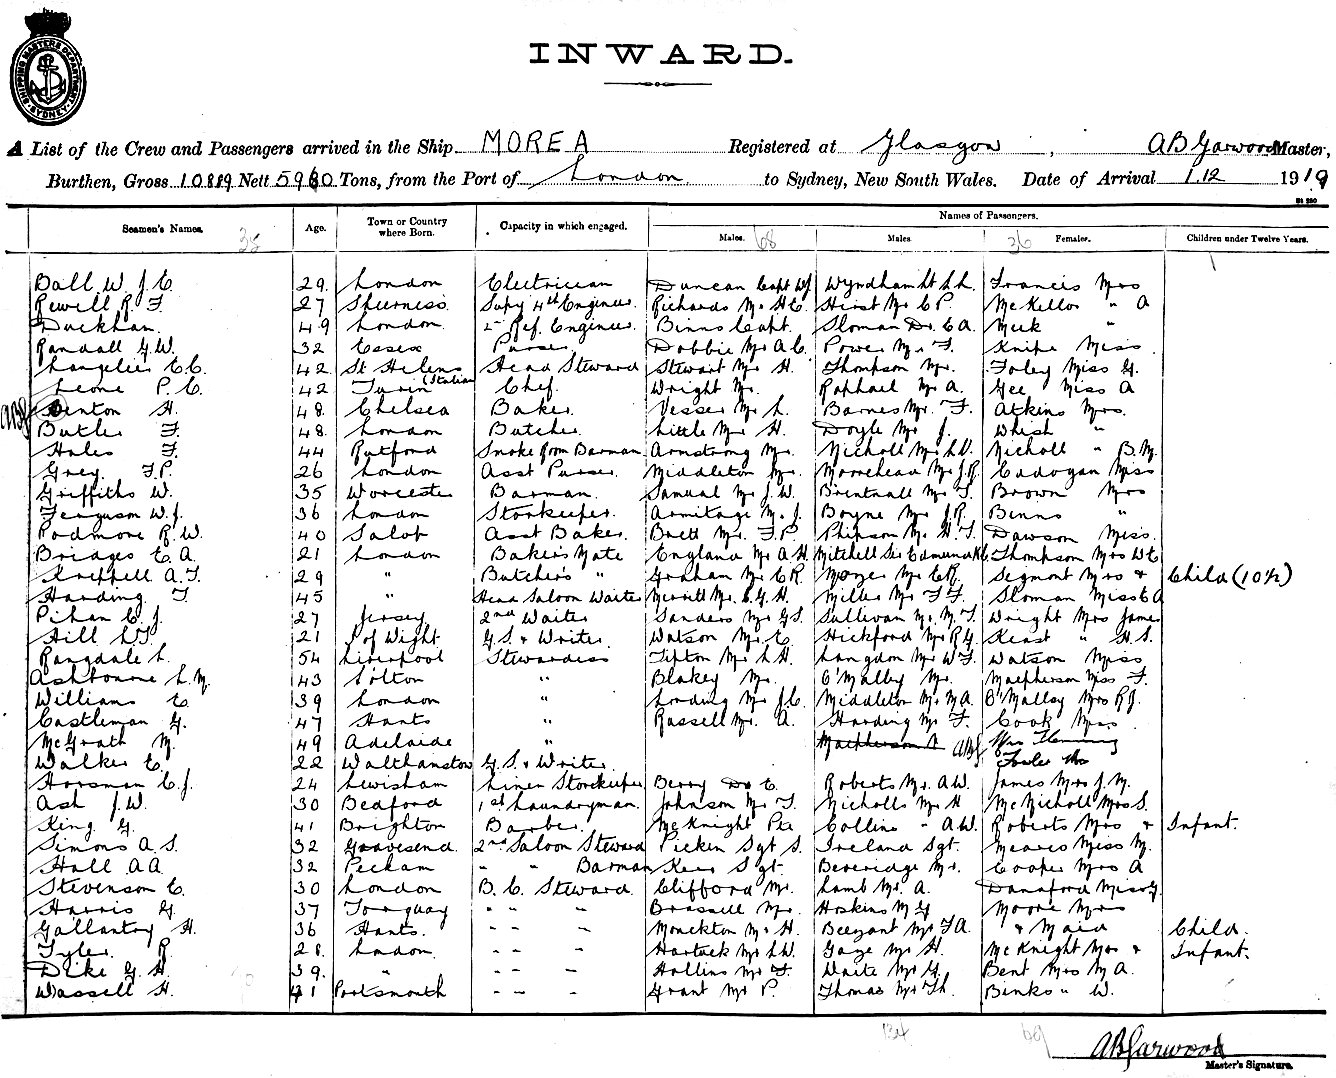 SHIPPING MASTER'S DEPARTMENT SYDNEY
INWARD.
A List of the Crew and Passengers arrived in the Ship MOREA Registered at Glasgow, AB Garwood Master,
Burthen, Gross 10889 Nett 5960 Tons, from the Port of London to Sydney, New South Wales. Date of Arrival 1.12 1919
Seamen's Names. Age. Town or Country where Born. Capacity in which engaged. Names of Passengers.
Males. 68 Males. 36 Females. Children under Twelve Years.
35 1
Ball W. J. C. 29. London Electrician Duncan Capt WJ Wyndham Lt L.L. Francis Mrs
Rewell R F. 27 Sheerness Supy 4th Engineer. Richards Mr H C Hirst Mr C P. McKellor " A
Duckham. 49 London 2nd Ref. Engineer. Binns Capt. Sloman Dr. C A. Meek "
Randall G. W. 32 Essex Purser Dobbie Mr A C. Power Mr F. Knipe Miss
Langelier C. C. 42 St Helens Head Steward Stewart Mr H. Thompson Mr. Foley Miss G.
Leone P. C. 42 Turin (Italian Chef. Wright Mr. Raphael Mr A. Gee Miss A
ABG Denton H. 48. Chelsea Baker. Vesser Mr L. Barnes Mr. F. Atkins Mrs.
Butler F. 48. London Butcher. Little Mr H. Doyle Mr J. Whish "
Hales F. 44 Smoke Room Barman Armstrong Mr. Nicholl Mr L.V. Nicholl " B.M.
Grey F. P. 26 London Asst Purser. Middleton Mr. Moorehead Mr J.R. Cadogan Miss
Griffiths W. 35 Worcester Barman. Samual Mr J. W. Brentnall Mr F. Brown Mrs
Ferguson W. J. 36 London Storekeeper. Armitage Mr J. Boyne Mr J.R. Binns "
Podmore R. W. 40 Salop Asst Baker. Brett Mr. F. P. Phipson Mr H. F. Dawson Miss.
Bridges E A. 21 London Baker's Mate England Mr A H. Mitchell Sir Edmund K C. Thompson Mrs W C
A. F. 29 " Butcher's " Graham Mr C R. Moyes Mr C R. Segmont Mrs & Child (10½)
Harding F. 45 " Head Saloon Waiter Merritt Mr. C. G. H. Miller Mr F F. Sloman Miss C A
Pihan C. J. 27 Jersey 2nd Waiter Sanders Mr G S. Sullivan Mr M. F. Wright Mrs James
Hill L. F 21 I of Wight G. S. & Writer. Watson Mr. C. Hickford Mr R G. Keast " H. S.
Ragsdale L. 54 Liverpool Stewardess Tipton Mr L H. Langdon Mr W F. Watson Miss
Ashbourne L. M. 43 " Blakey Mr. O'Malley Mr. Macpherson Miss F.
Williams C 39 London " Loading Mr J. C. Middleton Mr M A. O'Malley Mrs R J.
Castleman G. 47 Hants " Russell Mr. A. Harding Mr F. Cook Mrs
McGrath M. 49 Adelaide " Macpherson ABG Mrs Fleming
Walker C. 22 Walthamstow G. S. & Writer. Fowler Mrs
Horsman C. J. 24 Lewisham Linen Storekeeper Berry Dr C. Roberts Mr. A. W. James Mrs J. M.
Ash J. W. 30 Bedford 1st Laundryman. Johnson Mr F. Nicholls Mr H McNicholl Mrs S.
King G. 41 Brighton Barber. McKnight Pte Collins " A W. Roberts Mrs & Infant.
Simons A. S. 32 Gravesend 2nd Saloon Steward Picken Sgt S. Ireland Sgt. Meares Miss M.
Hall A A. 32 Peckham " " Barman Keir Sgt. Beveridge Mr. Cooper Mrs A
Stevenson C. 30 London B. C. Steward. Clifford Mr. Lamb Mr. A. Dansford Miss G.
Harris G. 37 Torquay - - - Brassell Mr. Hoskins Mr G Moore Mrs
Gallantry H. 36 Hants. - - - Monckton Mr H Beezant Mr F A. & Maid Child.
Tyler R 28. London. - - - Hartuck Mr L W. Gaze Mr H. McKnight Mrs & Infant.
Dike G. H. 39. " - - - Hollins Mr F. Waite Mr G. Bent Mrs M A.
Wassell H. 41 Portsmouth - - - Grant Mr P. Thomas Mr Th. Binks " W.
134 69
AB Garwood
Master's Signature.